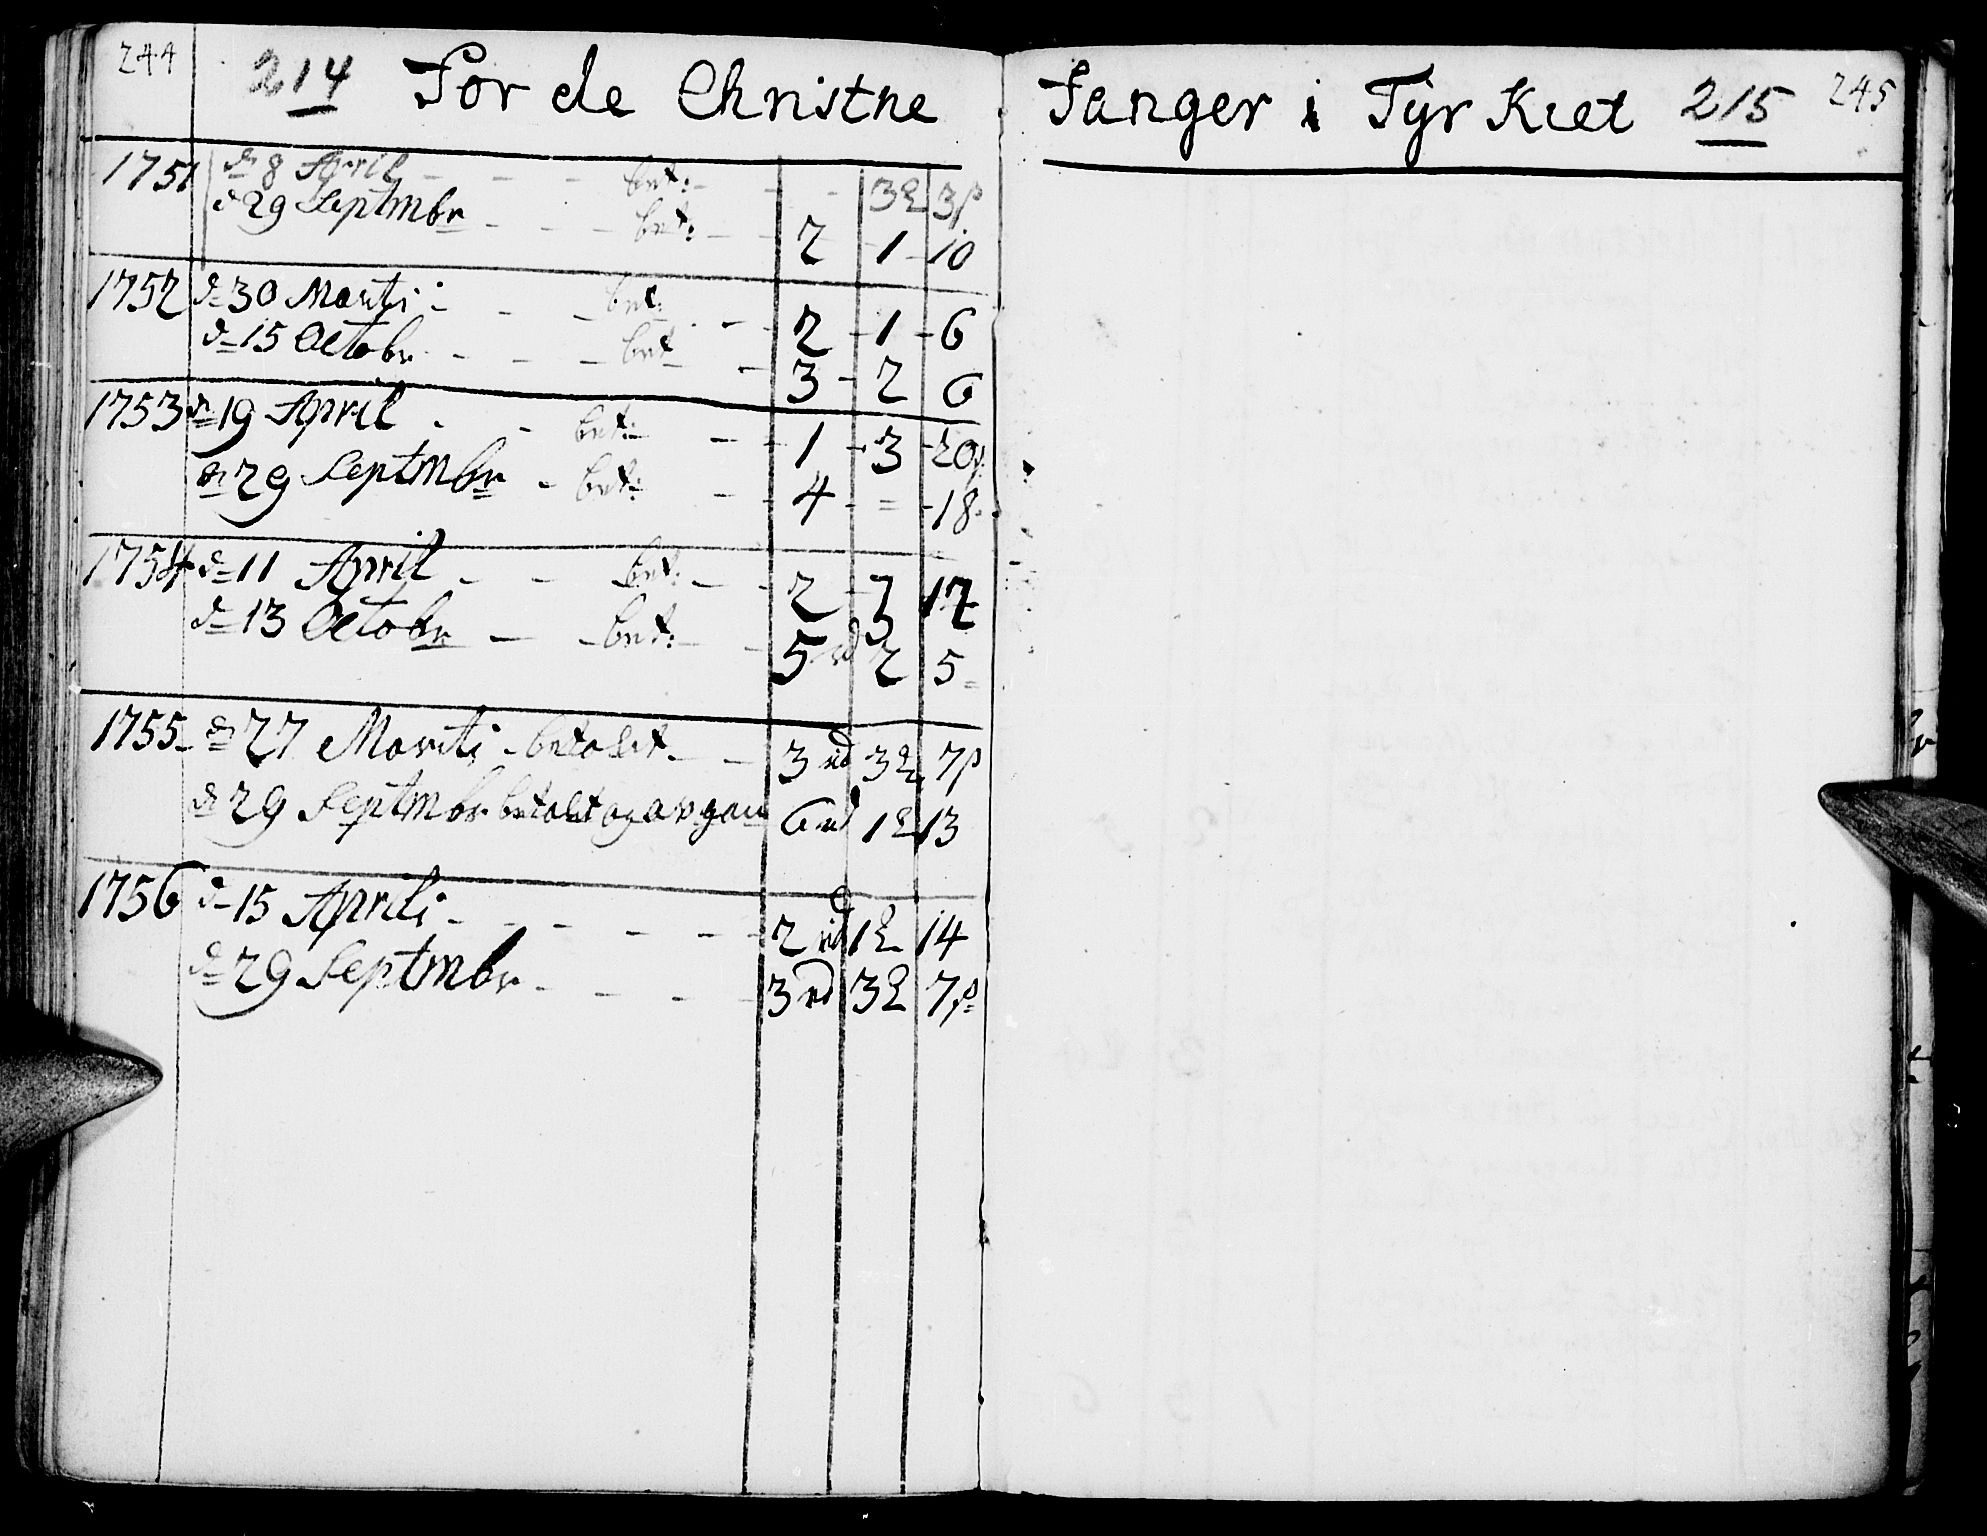 244 214 For de Christne
1751 dn 8 April - - - bet: - - - 3 3
d 29 Septembr - - - bet: - - 2 - 1 - 10
1752 d 30 Marti - - - bet: - - 2 - 1 - 6
d 15 Octobr - - - bet - - 3 - 2 6
1753 dn 19 April - - bet: - - 1 - 3 - 20
dn 29 Septmbr - bet: - - 4 - = - 18
1754 d 11 April - - bet: - - 2 - 3 12
d 13 Octobr - - bet: - - 5 rd 2 5
1755 dn 27 Marti - betalt - - 3 rd 3 7
dn 29 Septmbr betalt og 6 rd 1 13
1756 d 15 Aprili - - - - - 2 rd 1 14
d 29 Septmbr - - - - 3 rd 3 7
Fanger i Tyrkiet 215 245